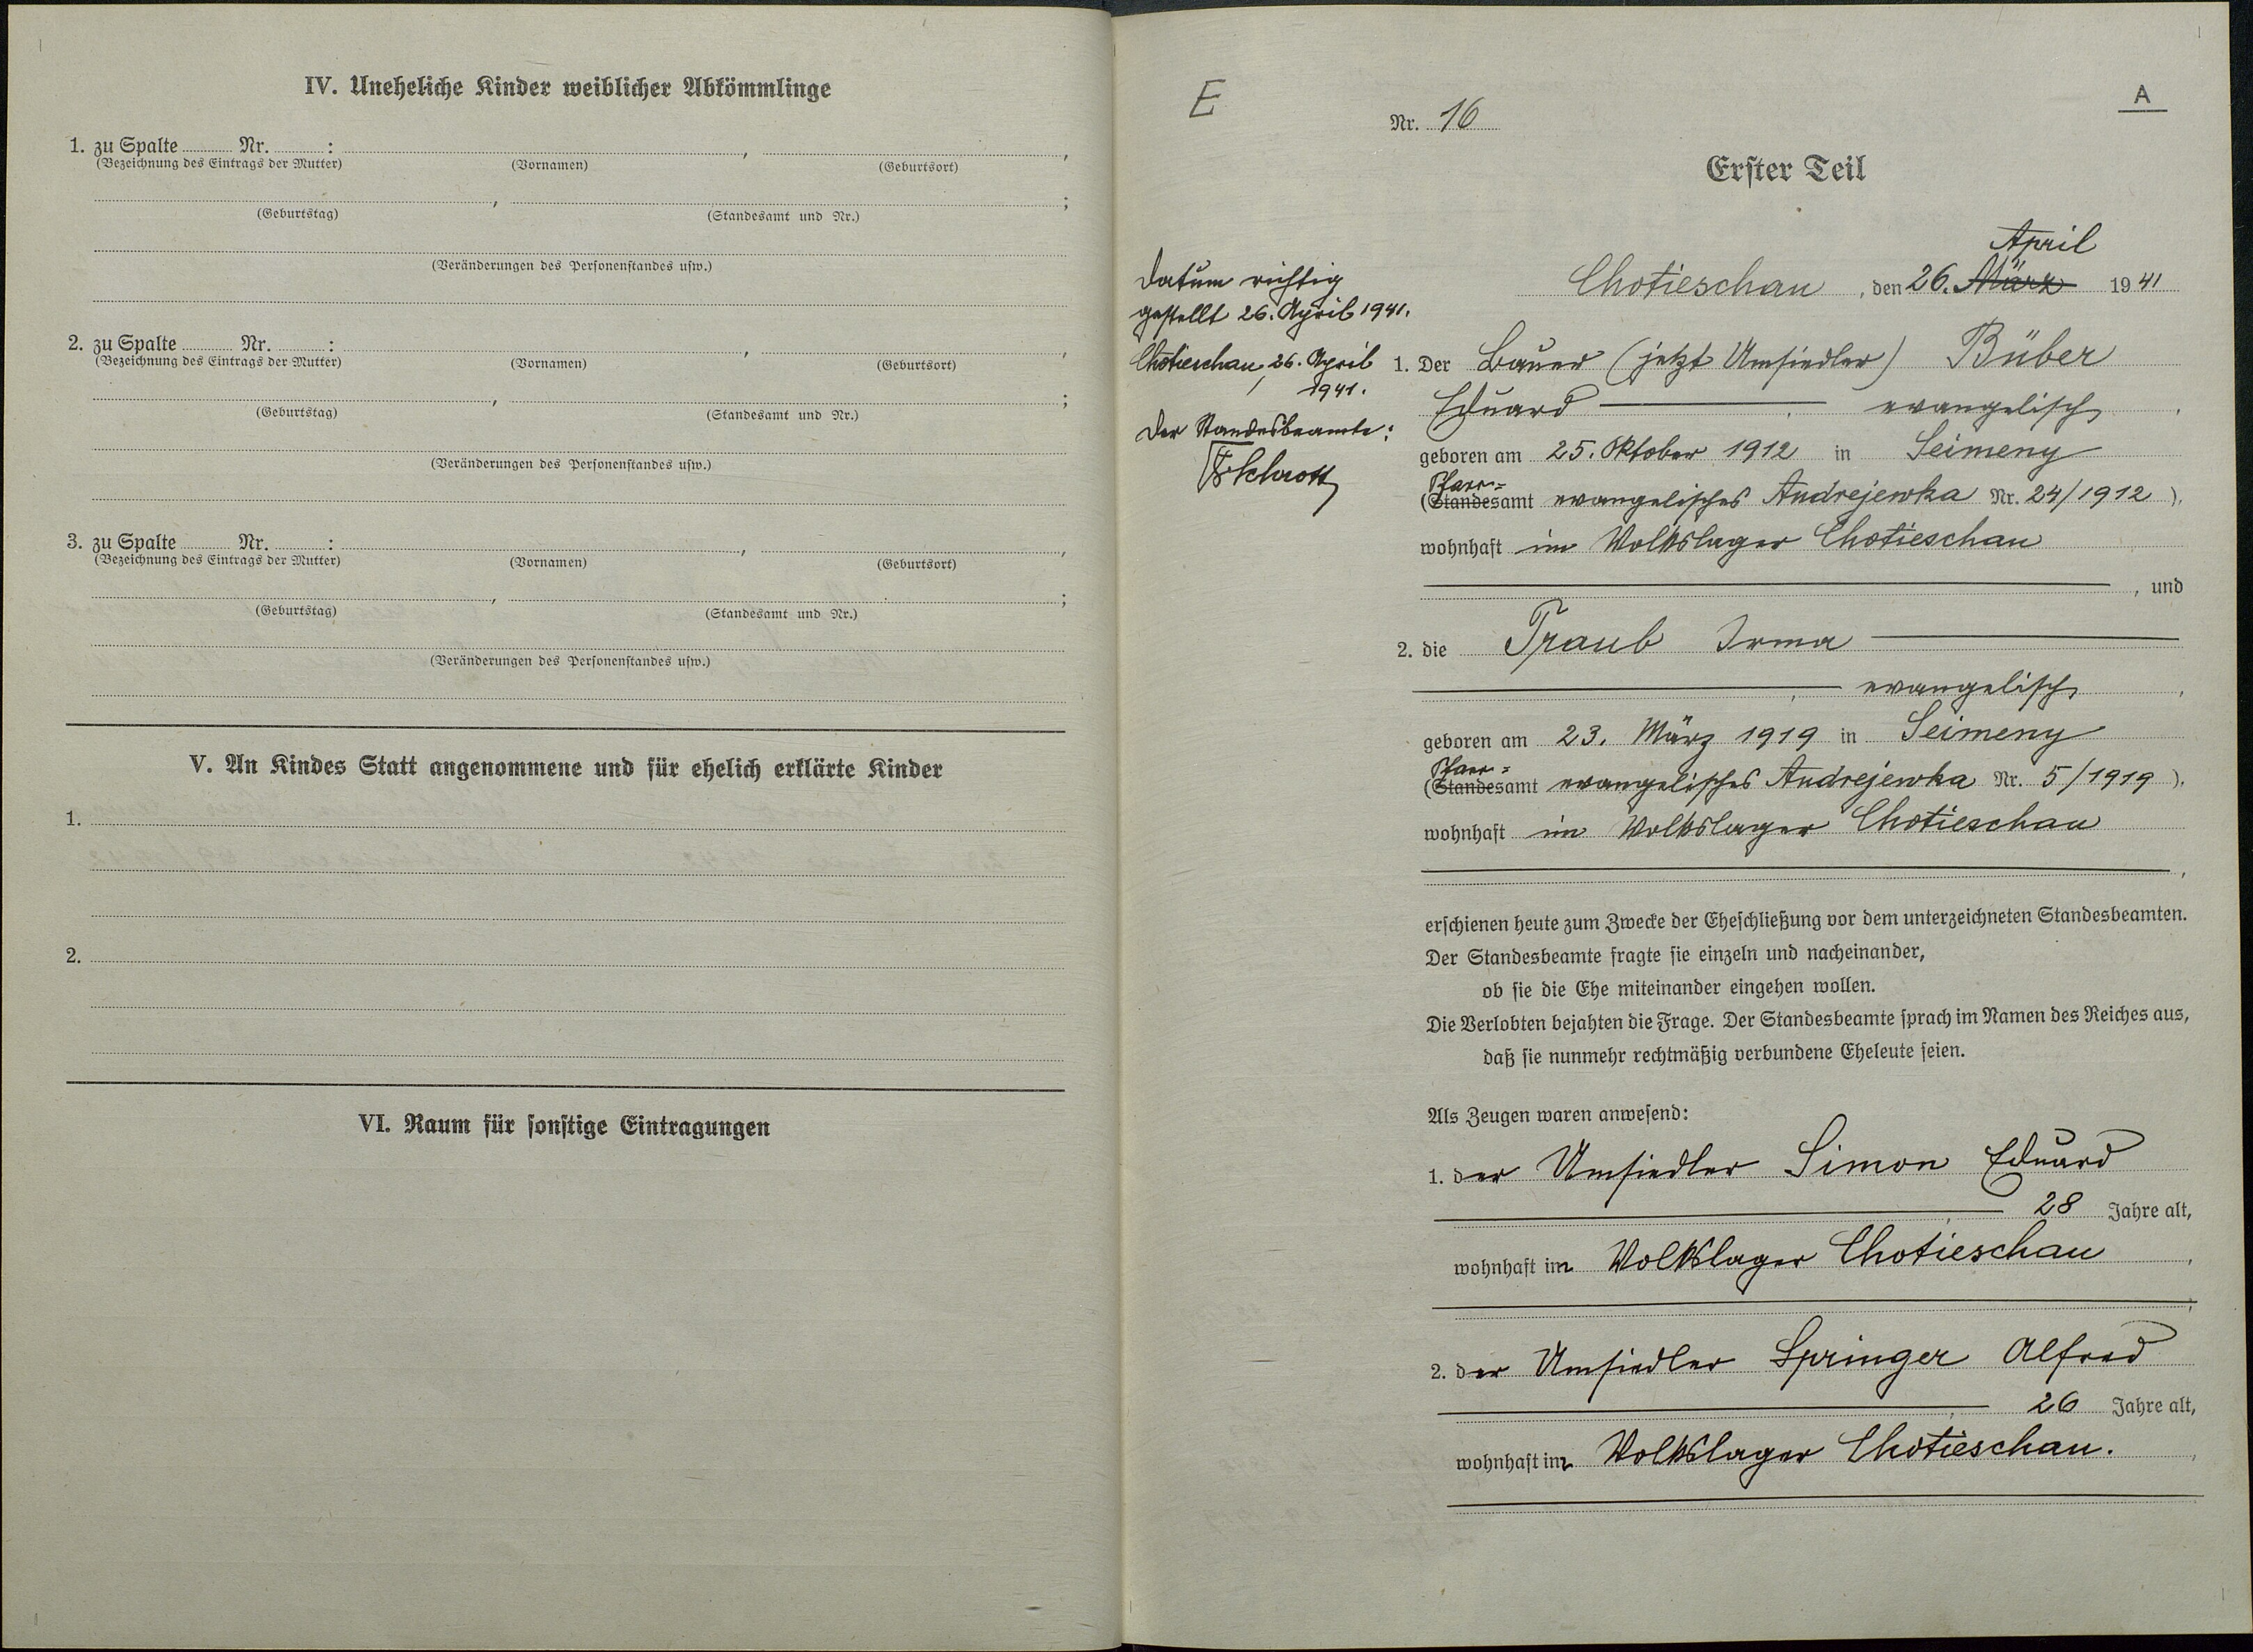 IV. Uneheliche Kinder weiblicher Abkömmlinge
1. zu Spalte Nr. : , ,
(Bezeichnung des Eintrags der Mutter) (Vornamen) (Geburtsort)
, ;
(Geburtstag) (Standesamt und Nr.)
(Veränderungen des Personenstandes usw.)
2. zu Spalte Nr. : , ,
(Bezeichnung des Eintrags der Mutter) (Vornamen) (Geburtsort)
, ;
(Geburtstag) (Standesamt und Nr.)
(Veränderungen des Personenstandes usw.)
3. zu Spalte Nr. : , ,
(Bezeichnung des Eintrags der Mutter) (Vornamen) (Geburtsort)
, ;
(Geburtstag) (Standesamt und Nr.)
(Veränderungen des Personenstandes usw.)
V. An Kindes Statt angenommene und für ehelich erklärte Kinder
1.
2.
VI. Raum für sonstige Eintragungen
E
A
Nr. 16
Erster Teil
April
Chotieschau, den 26. März 1941
Datum richtig
gestellt 26. April 1941.
Chotieschau, 26. April
1941.
Der Standesbeamte:
1. Der Bauer (jetzt Umsiedler) Büber
Eduard , evangelisch ,
geboren am 25. Oktober 1912 in Seimeny
Pfarr=
(Standesamt evangelisches Andrejewka Nr. 24/1912),
wohnhaft im Volkslager Chotieschau
, und
2. die Traub Irma
, evangelisch ,
geboren am 23. März 1919 in Seimeny
Pfarr=
(Standesamt evangelisches Andrejewka Nr. 5/1919),
wohnhaft im Volkslager Chotieschau
,
erschienen heute zum Zwecke der Eheschließung vor dem unterzeichneten Standesbeamten.
Der Standesbeamte fragte sie einzeln und nacheinander,
ob sie die Ehe miteinander eingehen wollen.
Die Verlobten bejahten die Frage. Der Standesbeamte sprach im Namen des Reiches aus,
daß sie nunmehr rechtmäßig verbundene Eheleute seien.
Als Zeugen waren anwesend:
1. der Umsiedler Simon Eduard
, 28 Jahre alt,
wohnhaft im Volkslager Chotieschau ,
;
2. der Umsiedler Springer Alfred
, 26 Jahre alt,
wohnhaft im Volkslager Chotieschau. ,